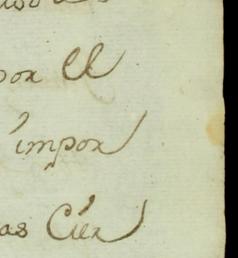 por el
impor
as Cier